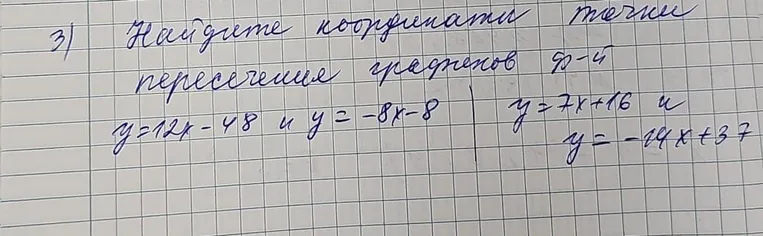 3) Найдите координаты точки
пересечения графиков ф-й
y=12x-48 и y=-8x-8 | y=7x+16 и
y=-14x+37